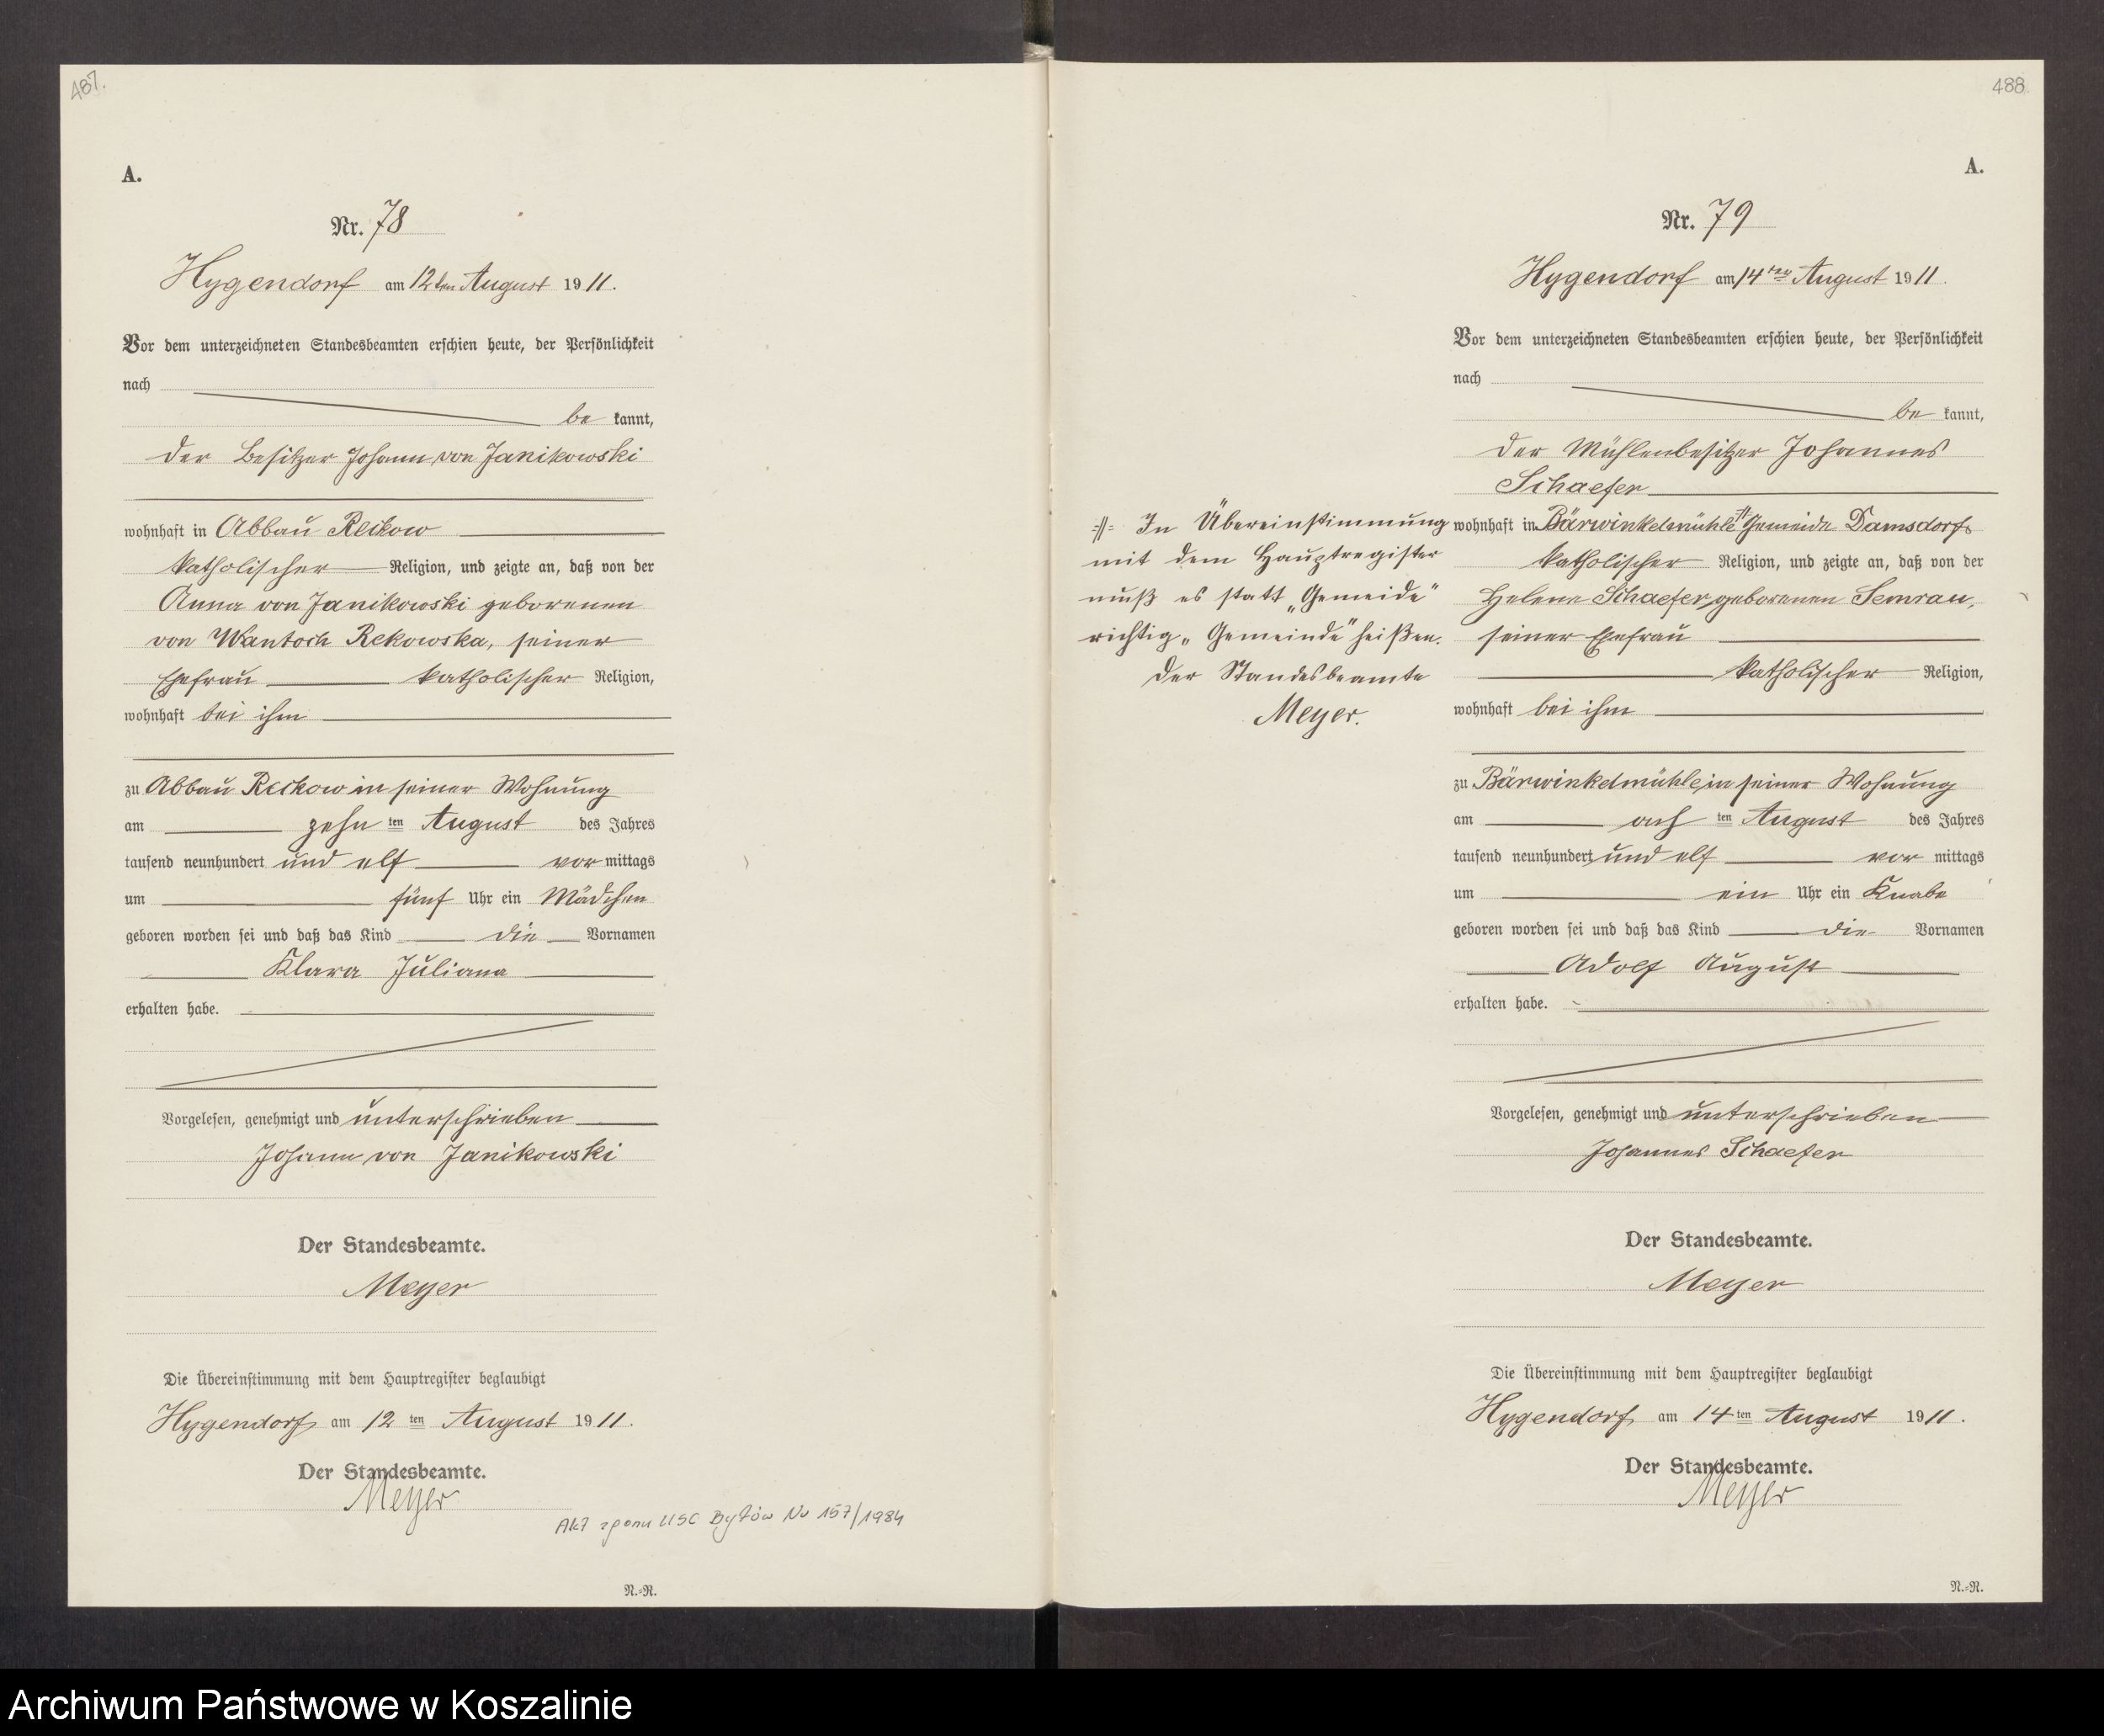 487.
A.
Nr. 78
Hygendorf am 12ten August 1911.
Vor dem unterzeichneten Standesbeamten erschien heute, der Persönlichkeit
nach
be kannt,
der Besitzer Johann von Janikowski
wohnhaft in Abbau Reckow
katholischer Religion, und zeigte an, daß von der
Anna von Janikowski geborenen
von Wantoch Rekowska, seiner
Ehefrau katholischer Religion,
wohnhaft bei ihm
zu Abbau Reckow in seiner Wohnung
am zehn ten August des Jahres
tausend neunhundert und elf vor mittags
um fünf Uhr ein Mädchen
geboren worden sei und daß das Kind die Vornamen
Klara Juliana
erhalten habe.
Vorgelesen, genehmigt und unterschrieben
Johann von Janikowski
Der Standesbeamte.
Meyer
Die Übereinstimmung mit dem Hauptregister beglaubigt
Hygendorf am 12 ten August 1911.
Der Standesbeamte.
Meyer
Akt zgonu USC Bytów Nr 157/1984
N.=R.
488
A.
Nr. 79
Hygendorf am 14ten August 1911.
Vor dem unterzeichneten Standesbeamten erschien heute, der Persönlichkeit
nach
be kannt,
der Mühlenbesitzer Johannes
Schaefer
wohnhaft in Bärwinkelmühle Gemeide Damsdorf
katholischer Religion, und zeigte an, daß von der
Helene Schaefer, geborenen Semrau,
seiner Ehefrau
katholischer Religion,
wohnhaft bei ihm
zu Bärwinkelmühle, in seiner Wohnung
am ach ten August des Jahres
tausend neunhundert und elf vor mittags
um ein Uhr ein Knabe
geboren worden sei und daß das Kind die Vornamen
Adolf August
erhalten habe.
Vorgelesen, genehmigt und unterschrieben
Johannes Schaefer
Der Standesbeamte.
Meyer
Die Übereinstimmung mit dem Hauptregister beglaubigt
Hygendorf am 14 ten August 1911.
Der Standesbeamte.
Meyer
N.=R.
In Übereinstimmung
mit dem Hauptregister
muß es statt „Gemeide"
richtig „Gemeinde" heißen.
Der Standesbeamte
Meyer.
Archiwum Państwowe w Koszalinie